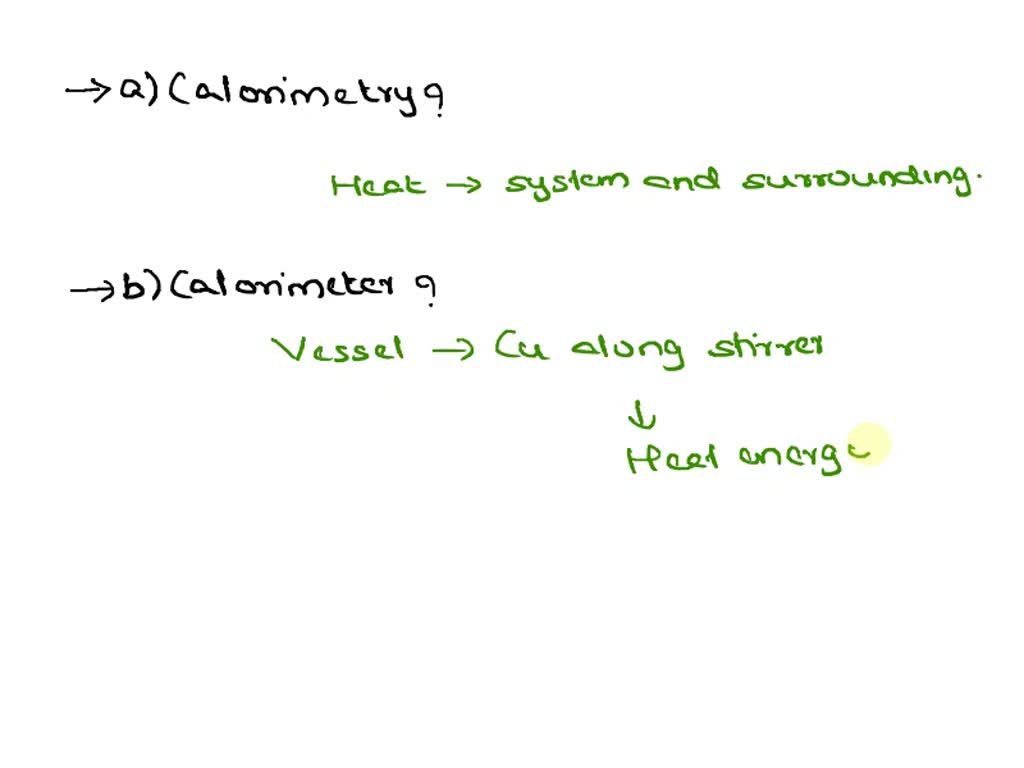 → a) Calorimetry?
Heat → system and surrounding.
→ b) Calorimeter ?
Vessel → Cu along stirrer
↓
Heat energ